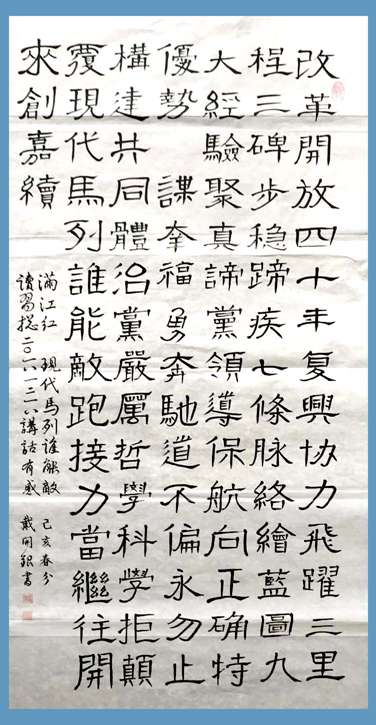 改革開放四十年复興協力飛躍三里
程三碑步稳蹄疾七條脉絡繪藍圖九
大經驗聚真諦黨領導保航向正确特
優勢 謀幸福勇奔馳道不偏永勿止
構建共同體治黨嚴厲哲學科學拒顛
覆現代馬列誰能敵跑接力當繼往開
來創嘉續
滿江紅 現代馬列誰能敵 己亥春分
讀習總二〇一八一二一八講話有感 戴開銀書